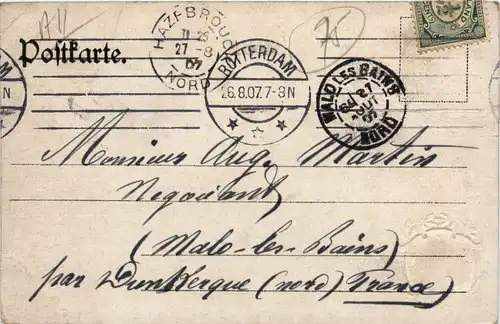 75
Postkarte.
HAZEBROUCK
27 - 8
07
NORD
ROTTERDAM
26.8.07.7-8N
MALO LES BAINS
27
NORD
Monsieur Aug. Martin
Negociant
(Malo-les-Bains)
par Dunkerque (nord) France)